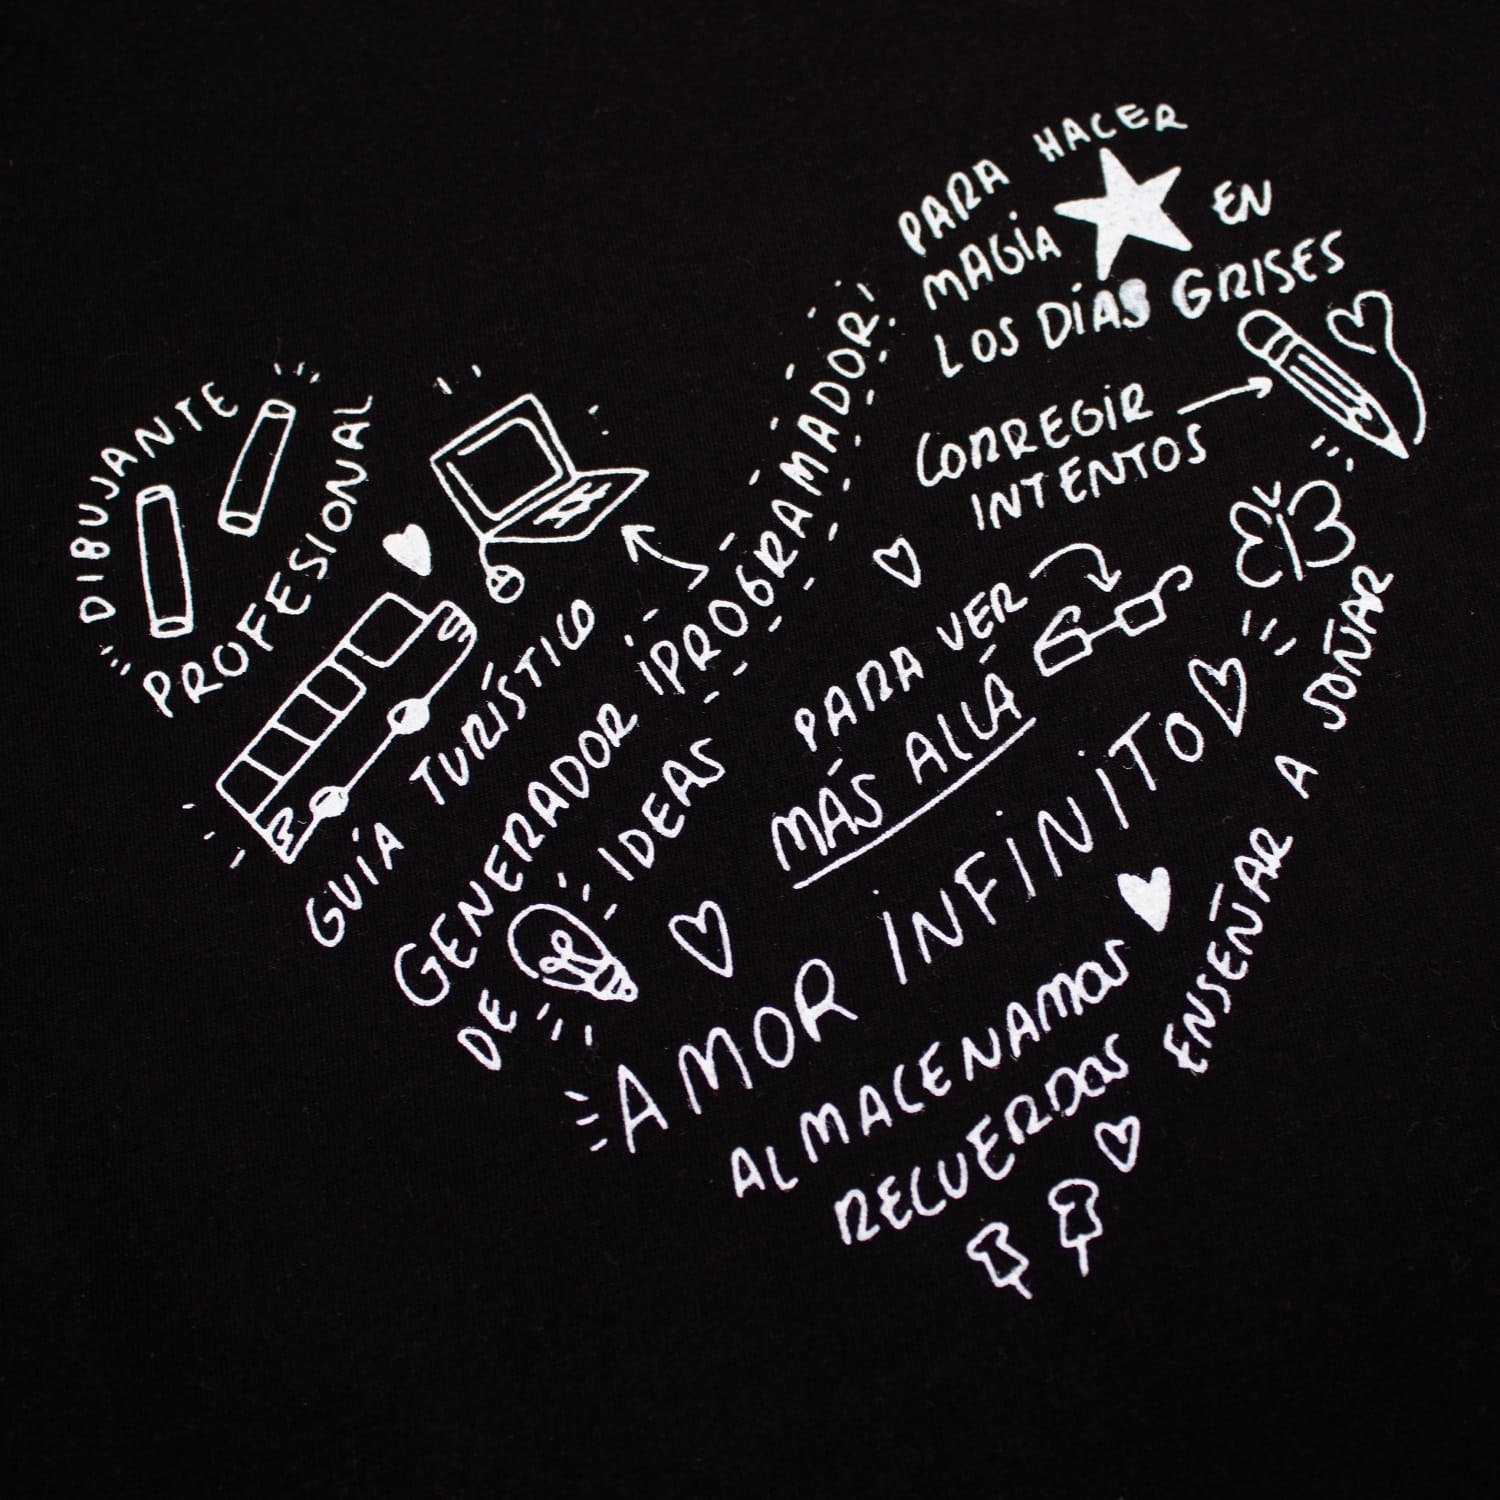 DIBUJANTE
PROFESIONAL
GUÍA TURÍSTICO
¡PROGRAMADOR!
GENERADOR
DE IDEAS
PARA HACER
MAGIA EN
LOS DÍAS GRISES
CORREGIR
INTENTOS
PARA VER
MÁS ALLÁ
AMOR INFINITO
ALMACENAMOS
RECUERDOS
ENSEÑAR A SOÑAR